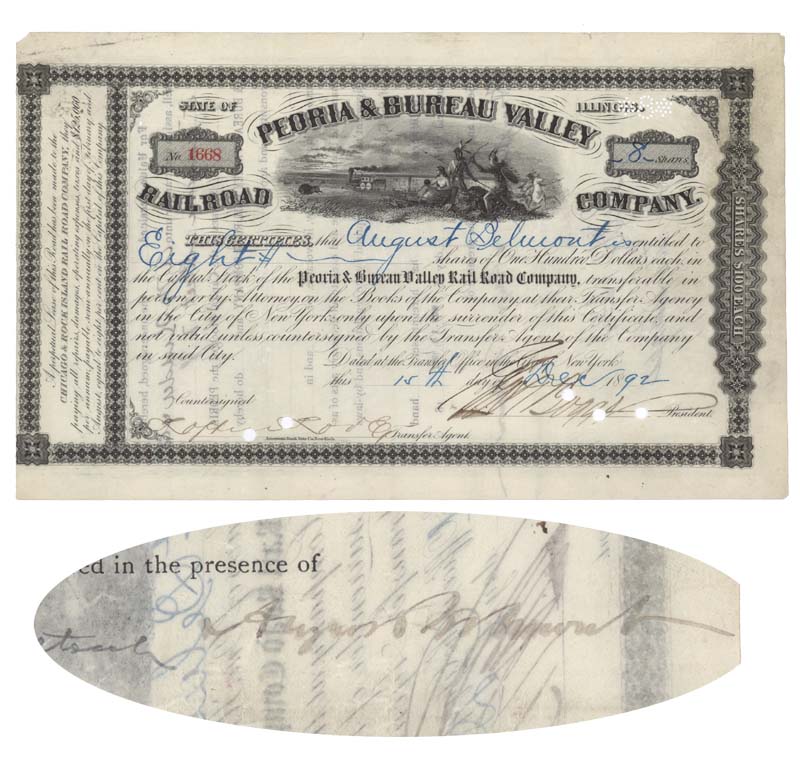 STATE OF ILLINOIS
PEORIA & BUREAU VALLEY
No. 1668
8 Shares
RAILROAD COMPANY.
THIS CERTIFIES, that August Belmont is entitled to
Eight shares of One Hundred Dollars each, in
the Capital Stock of the Peoria & Bureau Valley Rail Road Company, transferable in
person or by Attorney on the Books of the Company at their Transfer Agency
in the City of New York, only upon the surrender of this Certificate, and
not valid unless countersigned by the Transfer Agent of the Company
in said City.
Dated at the Transfer Office in the City of New York
this 15th day of Dec 1892
Countersigned
President.
Transfer Agent.
American Bank Note Co. New York.
A perpetual Lease of this Road has been made to the
CHICAGO & ROCK ISLAND RAIL ROAD COMPANY, they
paying all repairs, damages, operating expenses, taxes and $125,000
per annum, payable semi annually on the first day of February and
August, equal to eight per cent on the capital of this Company.
SHARES $100 EACH
ed in the presence of
August Belmont